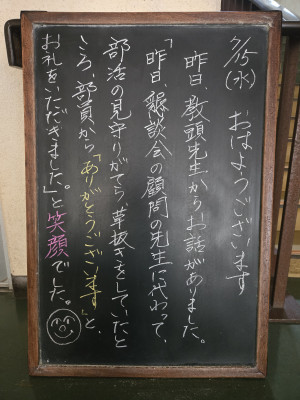 7/15(水) おはようございます
昨日、教頭先生からお話がありました。
「昨日、懇談会の顧問の先生に代わって、
部活の見守りがてら草抜きをしていたと
ころ、部員から「ありがとうございます」と、
お礼をいただきました」。と笑顔でした。